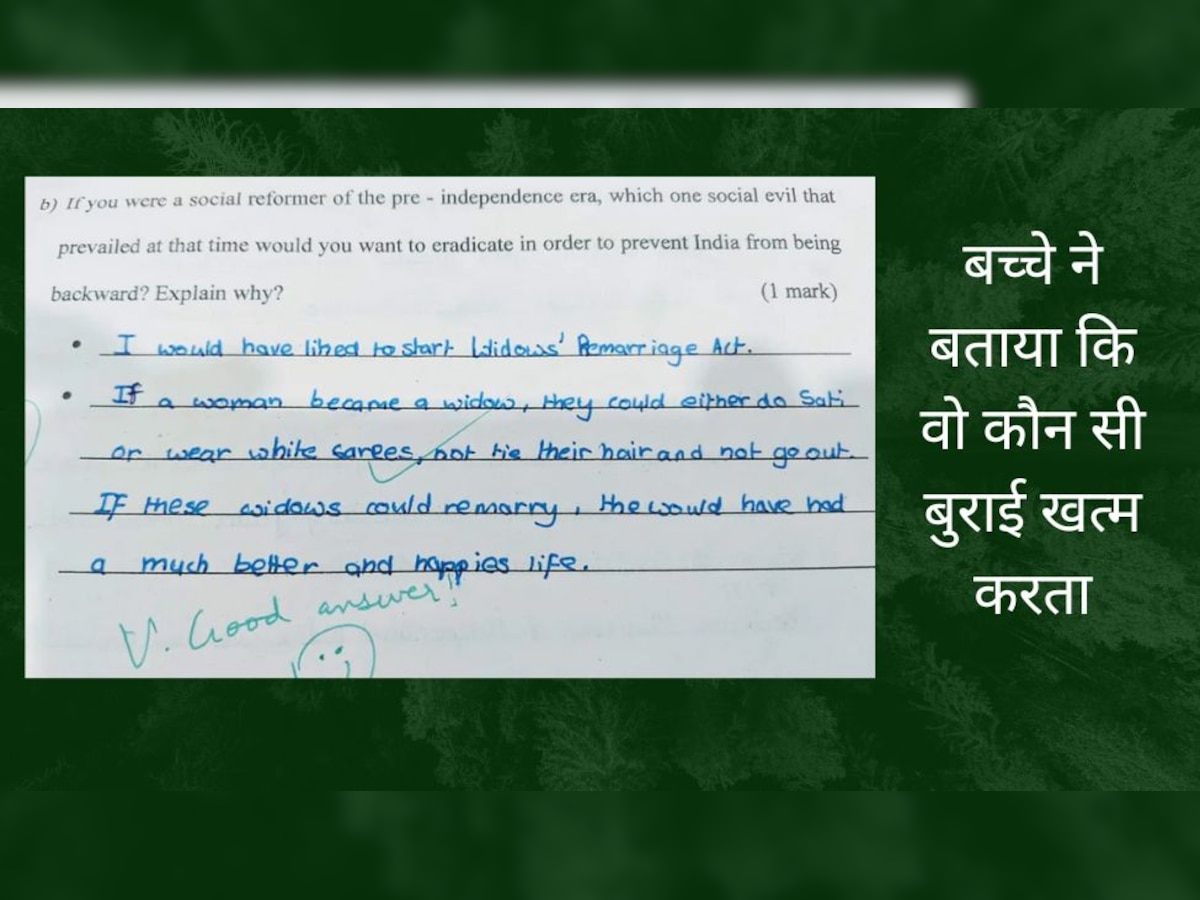 b) If you were a social reformer of the pre - independence era, which one social evil that
prevailed at that time would you want to eradicate in order to prevent India from being
backward? Explain why? (1 mark)
• I would have liked to start Widows' Remarriage Act.
• If a woman became a widow, they could either do Sati
or wear white sarees, not tie their hair and not go out.
If these widows could remarry, the would have had
a much better and happies life.
V. Good answer!!
बच्चे ने
बताया कि
वो कौन सी
बुराई खत्म
करता